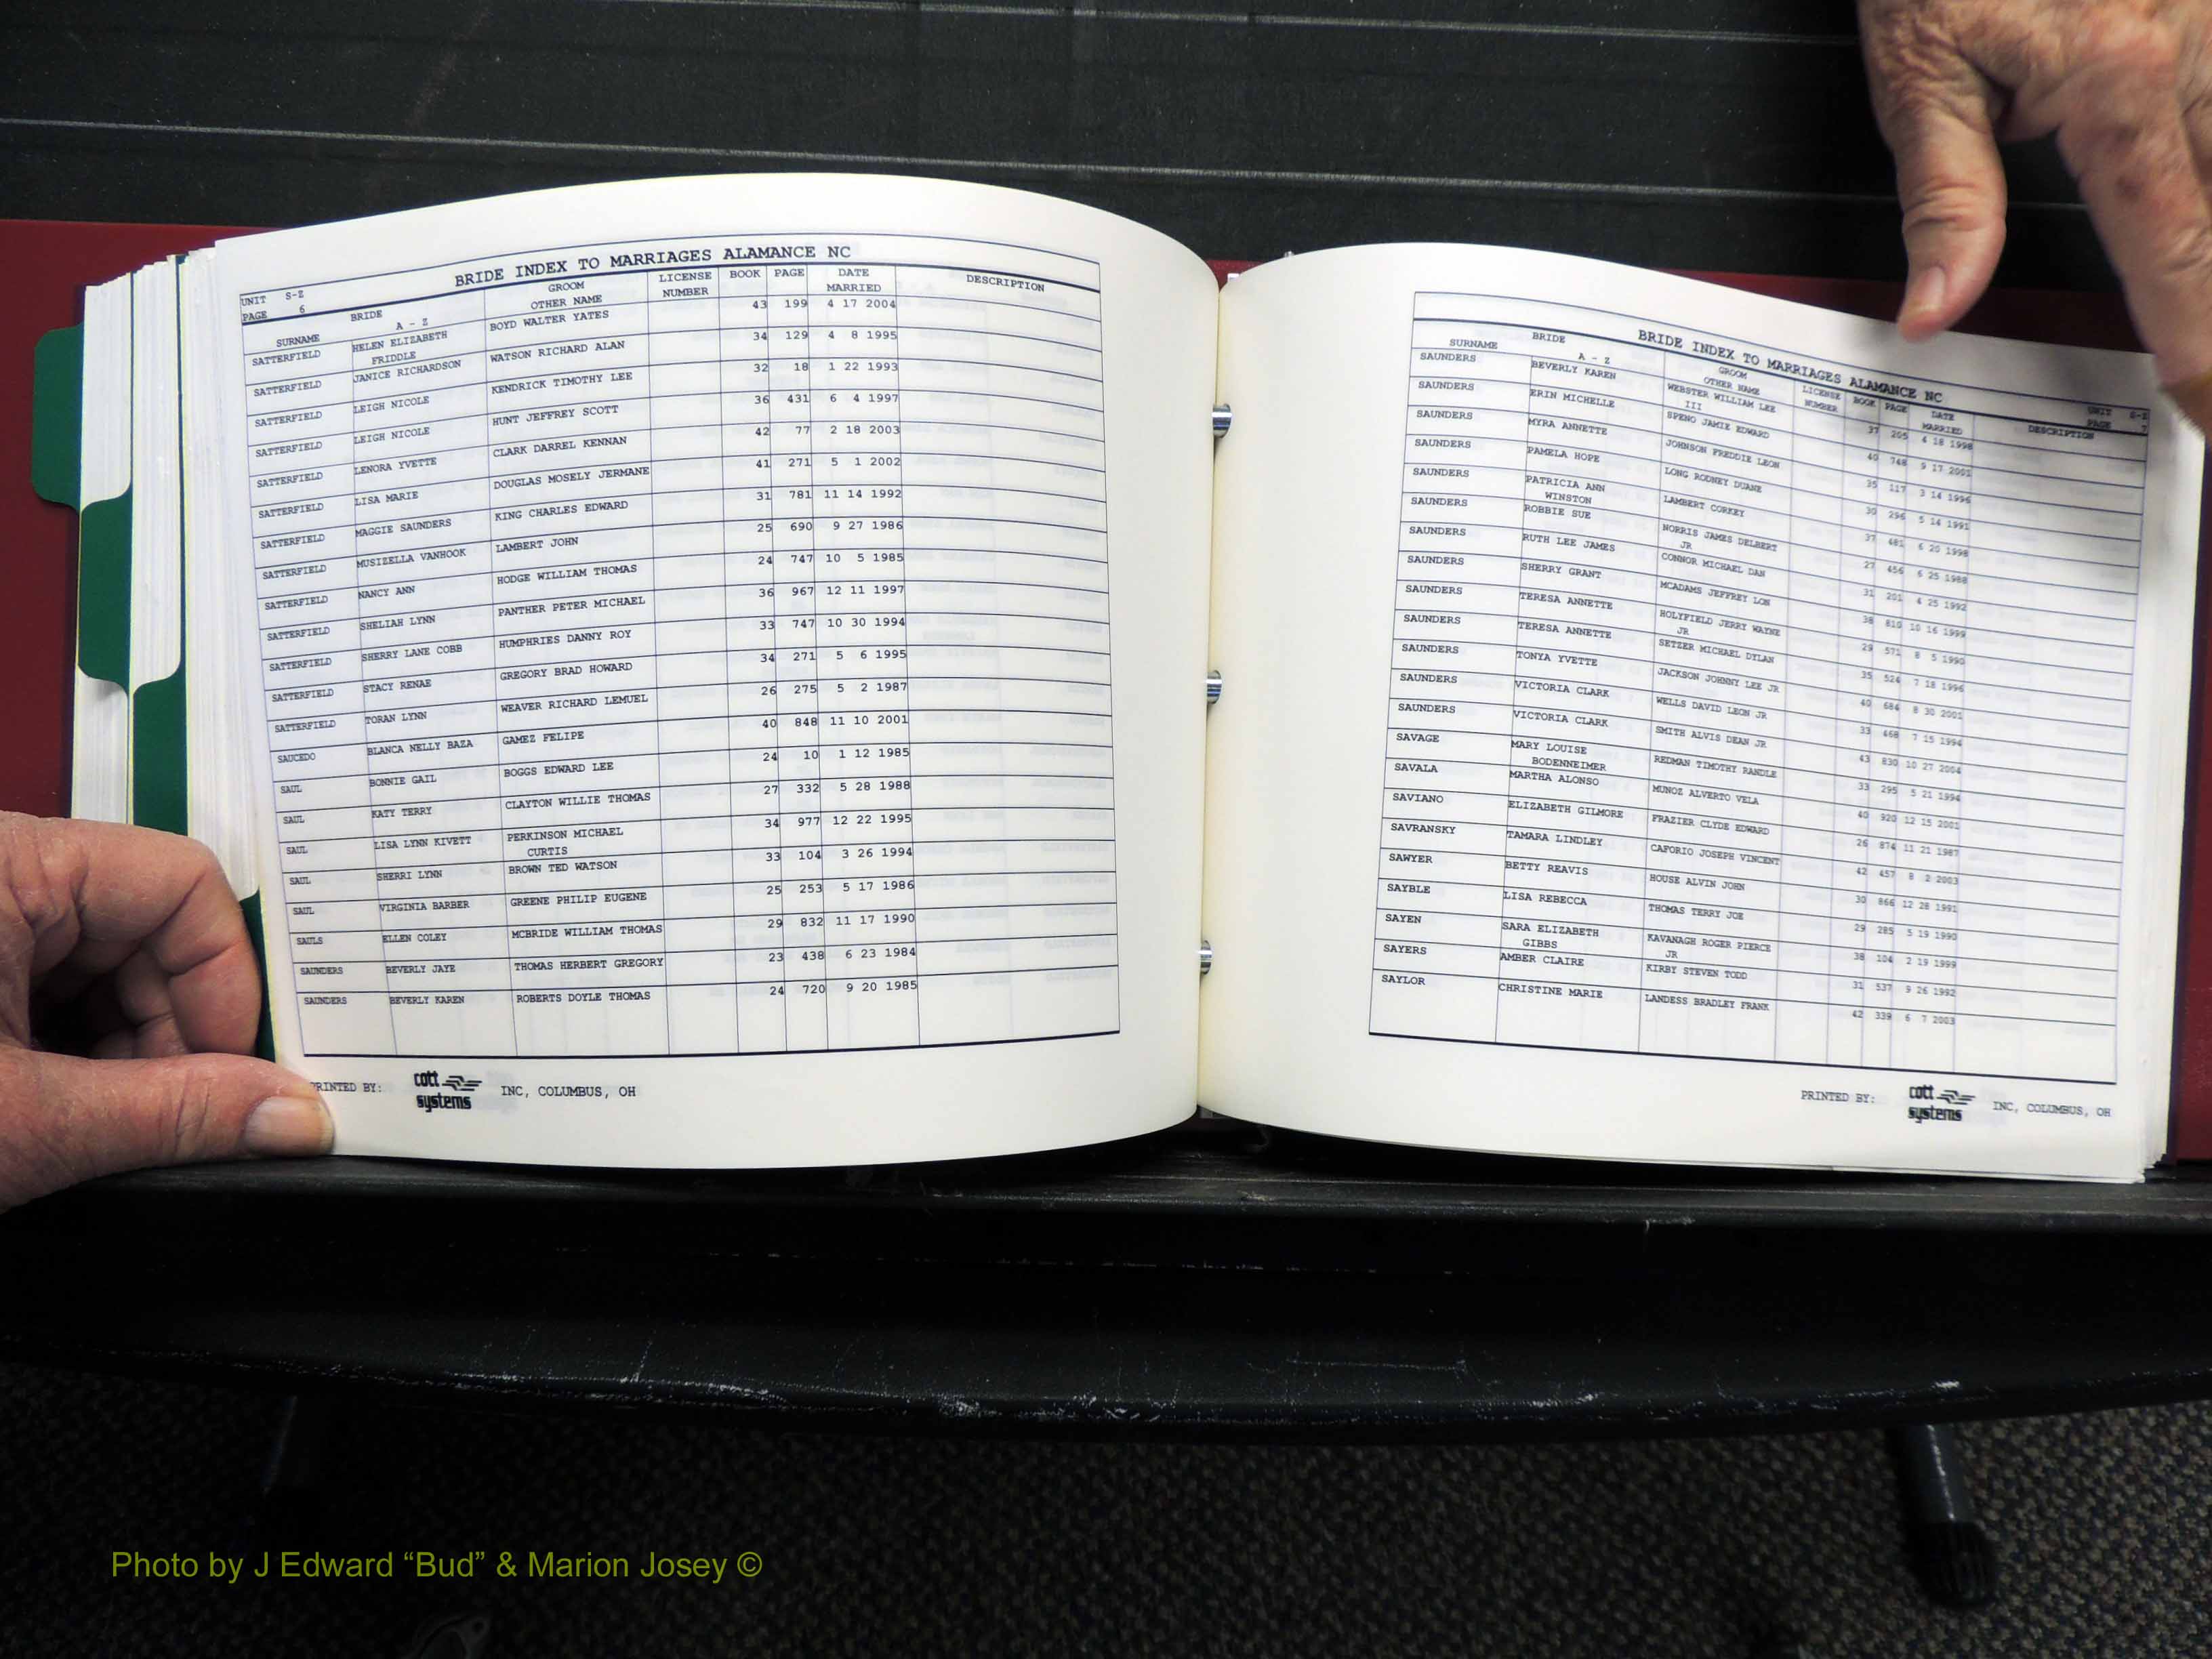 BRIDE INDEX TO MARRIAGES ALAMANCE NC
UNIT S-Z
PAGE 6
BRIDE GROOM LICENSE BOOK PAGE DATE DESCRIPTION
SURNAME A - Z OTHER NAME NUMBER MARRIED
SATTERFIELD HELEN ELIZABETH BOYD WALTER YATES 43 199 4 17 2004
FRIDDLE
SATTERFIELD JANICE RICHARDSON WATSON RICHARD ALAN 34 129 4 8 1995
SATTERFIELD LEIGH NICOLE KENDRICK TIMOTHY LEE 32 18 1 22 1993
SATTERFIELD LEIGH NICOLE HUNT JEFFREY SCOTT 36 431 6 4 1997
SATTERFIELD LENORA YVETTE CLARK DARREL KENNAN 42 77 2 18 2003
SATTERFIELD LISA MARIE DOUGLAS MOSELY JERMANE 41 271 5 1 2002
SATTERFIELD MAGGIE SAUNDERS KING CHARLES EDWARD 31 781 11 14 1992
SATTERFIELD MUSIZELLA VANHOOK LAMBERT JOHN 25 690 9 27 1986
SATTERFIELD NANCY ANN HODGE WILLIAM THOMAS 24 747 10 5 1985
SATTERFIELD SHELIAH LYNN PANTHER PETER MICHAEL 36 967 12 11 1997
SATTERFIELD SHERRY LANE COBB HUMPHRIES DANNY ROY 33 747 10 30 1994
SATTERFIELD STACY RENAE GREGORY BRAD HOWARD 34 271 5 6 1995
SATTERFIELD TORAN LYNN WEAVER RICHARD LEMUEL 26 275 5 2 1987
SAUCEDO BLANCA NELLY BAZA GAMEZ FELIPE 40 848 11 10 2001
SAUL BONNIE GAIL BOGGS EDWARD LEE 24 10 1 12 1985
SAUL KATY TERRY CLAYTON WILLIE THOMAS 27 332 5 28 1988
SAUL LISA LYNN KIVETT PERKINSON MICHAEL 34 977 12 22 1995
CURTIS
SAUL SHERRI LYNN BROWN TED WATSON 33 104 3 26 1994
SAUL VIRGINIA BARBER GREENE PHILIP EUGENE 25 253 5 17 1986
SAULS ELLEN COLEY MCBRIDE WILLIAM THOMAS 29 832 11 17 1990
SAUNDERS BEVERLY JAYE THOMAS HERBERT GREGORY 23 438 6 23 1984
SAUNDERS BEVERLY KAREN ROBERTS DOYLE THOMAS 24 720 9 20 1985
PRINTED BY: cott systems INC, COLUMBUS, OH
BRIDE INDEX TO MARRIAGES ALAMANCE NC
UNIT S-Z
PAGE 7
BRIDE GROOM LICENSE BOOK PAGE DATE DESCRIPTION
SURNAME A - Z OTHER NAME NUMBER MARRIED
SAUNDERS BEVERLY KAREN WEBSTER WILLIAM LEE 37 205 4 18 1998
III
SAUNDERS ERIN MICHELLE SPENO JAMIE EDWARD 40 748 9 17 2001
SAUNDERS MYRA ANNETTE JOHNSON FREDDIE LEON 35 117 3 14 1996
SAUNDERS PAMELA HOPE LONG RODNEY DUANE 30 296 5 14 1991
SAUNDERS PATRICIA ANN LAMBERT CORKEY 37 481 6 20 1998
WINSTON
SAUNDERS ROBBIE SUE NORRIS JAMES DELBERT 27 456 6 25 1988
JR
SAUNDERS RUTH LEE JAMES CONNOR MICHAEL DAN 31 201 4 25 1992
SAUNDERS SHERRY GRANT MCADAMS JEFFREY LON 38 810 10 16 1999
SAUNDERS TERESA ANNETTE HOLYFIELD JERRY WAYNE 29 571 8 5 1990
JR
SAUNDERS TERESA ANNETTE SETZER MICHAEL DYLAN 35 524 7 18 1996
SAUNDERS TONYA YVETTE JACKSON JOHNNY LEE JR 40 684 8 30 2001
SAUNDERS VICTORIA CLARK WELLS DAVID LEON JR 33 468 7 15 1994
SAUNDERS VICTORIA CLARK SMITH ALVIS DEAN JR 43 830 10 27 2004
SAVAGE MARY LOUISE REDMAN TIMOTHY RANDLE 33 295 5 21 1994
BODENNEIMER
SAVALA MARTHA ALONSO MUNOZ ALVERTO VELA 40 920 12 15 2001
SAVIANO ELIZABETH GILMORE FRAZIER CLYDE EDWARD 26 874 11 21 1987
SAVRANSKY TAMARA LINDLEY CAFORIO JOSEPH VINCENT 42 457 8 2 2003
SAWYER BETTY REAVIS HOUSE ALVIN JOHN 30 866 12 28 1991
SAYBLE LISA REBECCA THOMAS TERRY JOE 29 285 5 19 1990
SAYEN SARA ELIZABETH KAVANAGH ROGER PIERCE 38 104 2 19 1999
GIBBS JR
SAYERS AMBER CLAIRE KIRBY STEVEN TODD 31 537 9 26 1992
SAYLOR CHRISTINE MARIE LANDESS BRADLEY FRANK 42 339 6 7 2003
PRINTED BY: cott systems INC, COLUMBUS, OH
Photo by J Edward “Bud” & Marion Josey ©